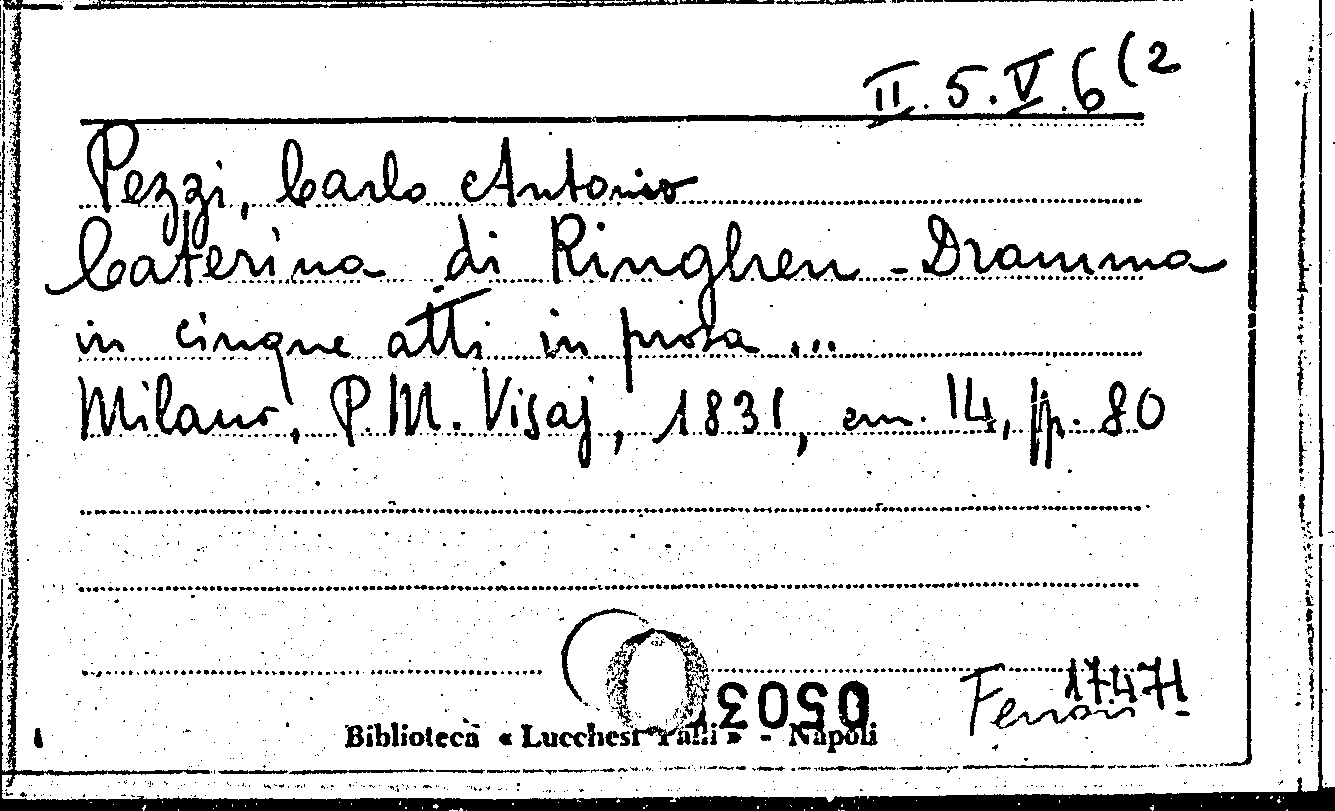 II.5.V.6(2
Pezzi, Carlo Antonio
Caterina di Ringhen - Dramma
in cinque atti in prosa ...
Milano, P.M. Visaj, 1831, cm. 14, pp. 80
0503
17471
Biblioteca « Lucchesi Palli » - Napoli